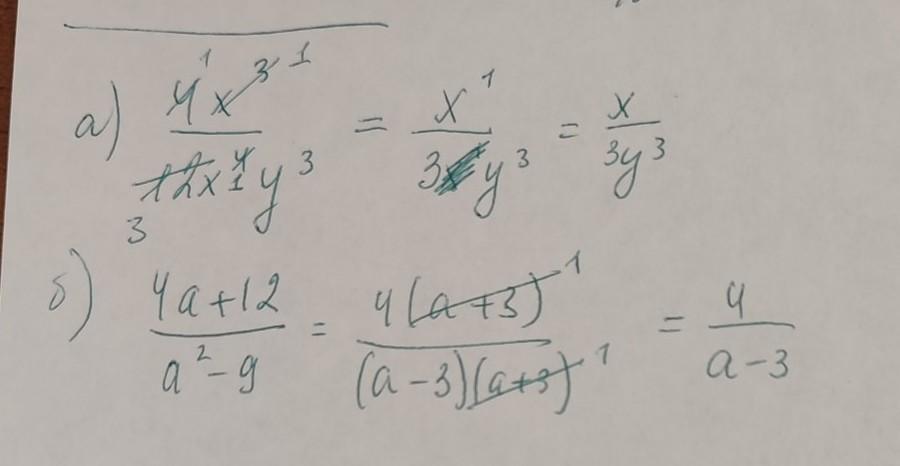 а) 4x³ / 12x⁴y³ = x¹ / 3y³ = x / 3y³
б) 4a+12 / a²-9 = 4(a+3) / (a-3)(a+3) = 4 / a-3